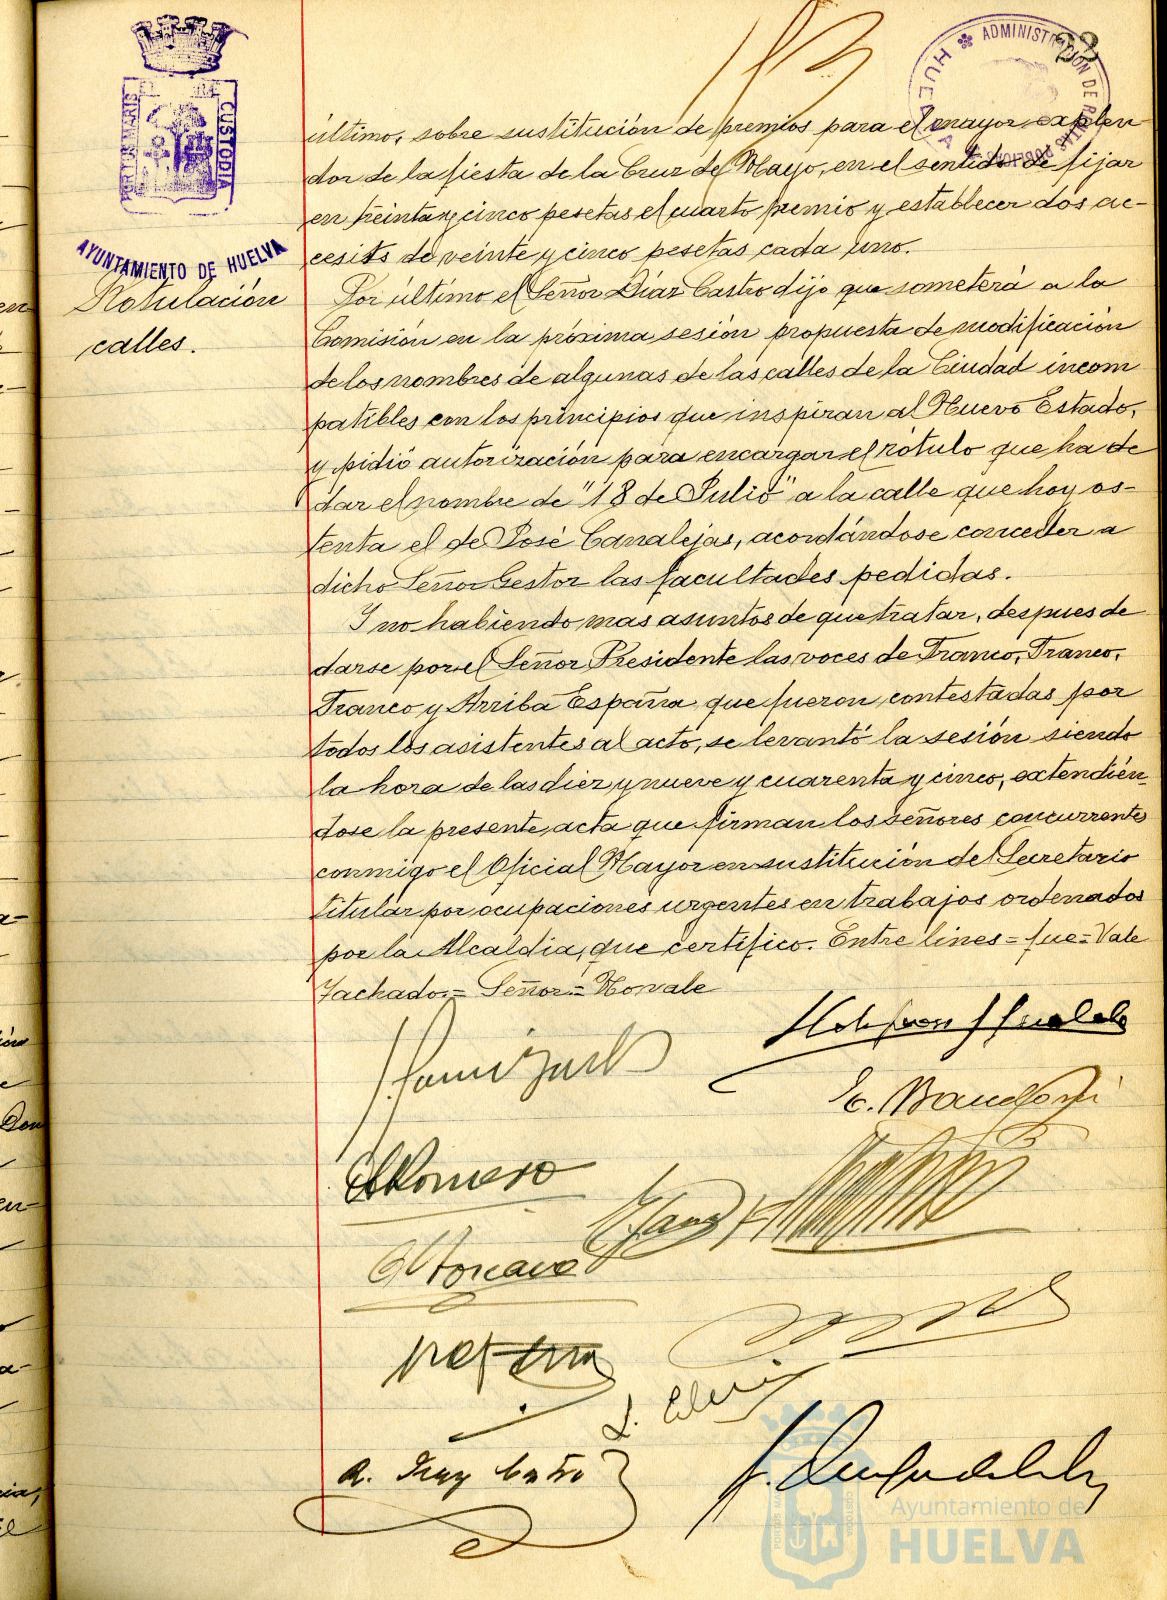 33
ADMINISTRACIÓN DE RENTAS
HUELVA
PORTUS MARIS
CUSTODIA
AYUNTAMIENTO DE HUELVA
Rotulación
calles.
último, sobre sustitución de premios para el mayor explen-
dor de la fiesta de la Cruz de Mayo, en el sentido de fijar
en treinta y cinco pesetas el cuarto premio y establecer dos ac-
cesits de veinte y cinco pesetas cada uno.
Por último el Señor Díaz Castro dijo que someterá a la
Comisión en la próxima sesión propuesta de modificación
de los nombres de algunas de las calles de la Ciudad incom
patibles con los principios que inspiran al Nuevo Estado,
y pidió autorización para encargar el rótulo que ha de
dar el nombre de "18 de Julio" a la calle que hoy os-
tenta el de José Canalejas, acordándose conceder a
dicho Señor Gestor las facultades pedidas.
Y no habiendo mas asuntos de que tratar, despues de
darse por el Señor Presidente las voces de Franco, Franco,
Franco y Arriba España que fueron contestadas por
todos los asistentes al acto, se levantó la sesión siendo
la hora de las diez y nueve y cuarenta y cinco, extendién-
dose la presente acta que firman los señores concurrentes
conmigo el Oficial Mayor en sustitución del Secretario
titular por ocupaciones urgentes en trabajos ordenados
por la Alcaldia, que certifico. Entre lines = fue = Vale
Tachado = Señor = No vale
E. Bandofri
Romero
R. Diaz Castro
Ayuntamiento de
HUELVA